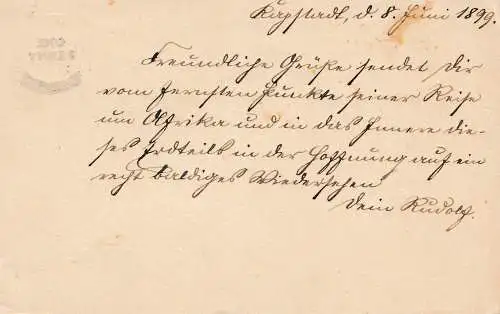 Kapstadt, d. 8. Juni 1899.
Freundliche Grüße sendet Dir
vom fernsten Punkte seiner Reise
um Afrika und in das Innere die-
ses Erdteils in der Hoffnung auf ein
recht baldiges Wiedersehen
Dein Rudolf.